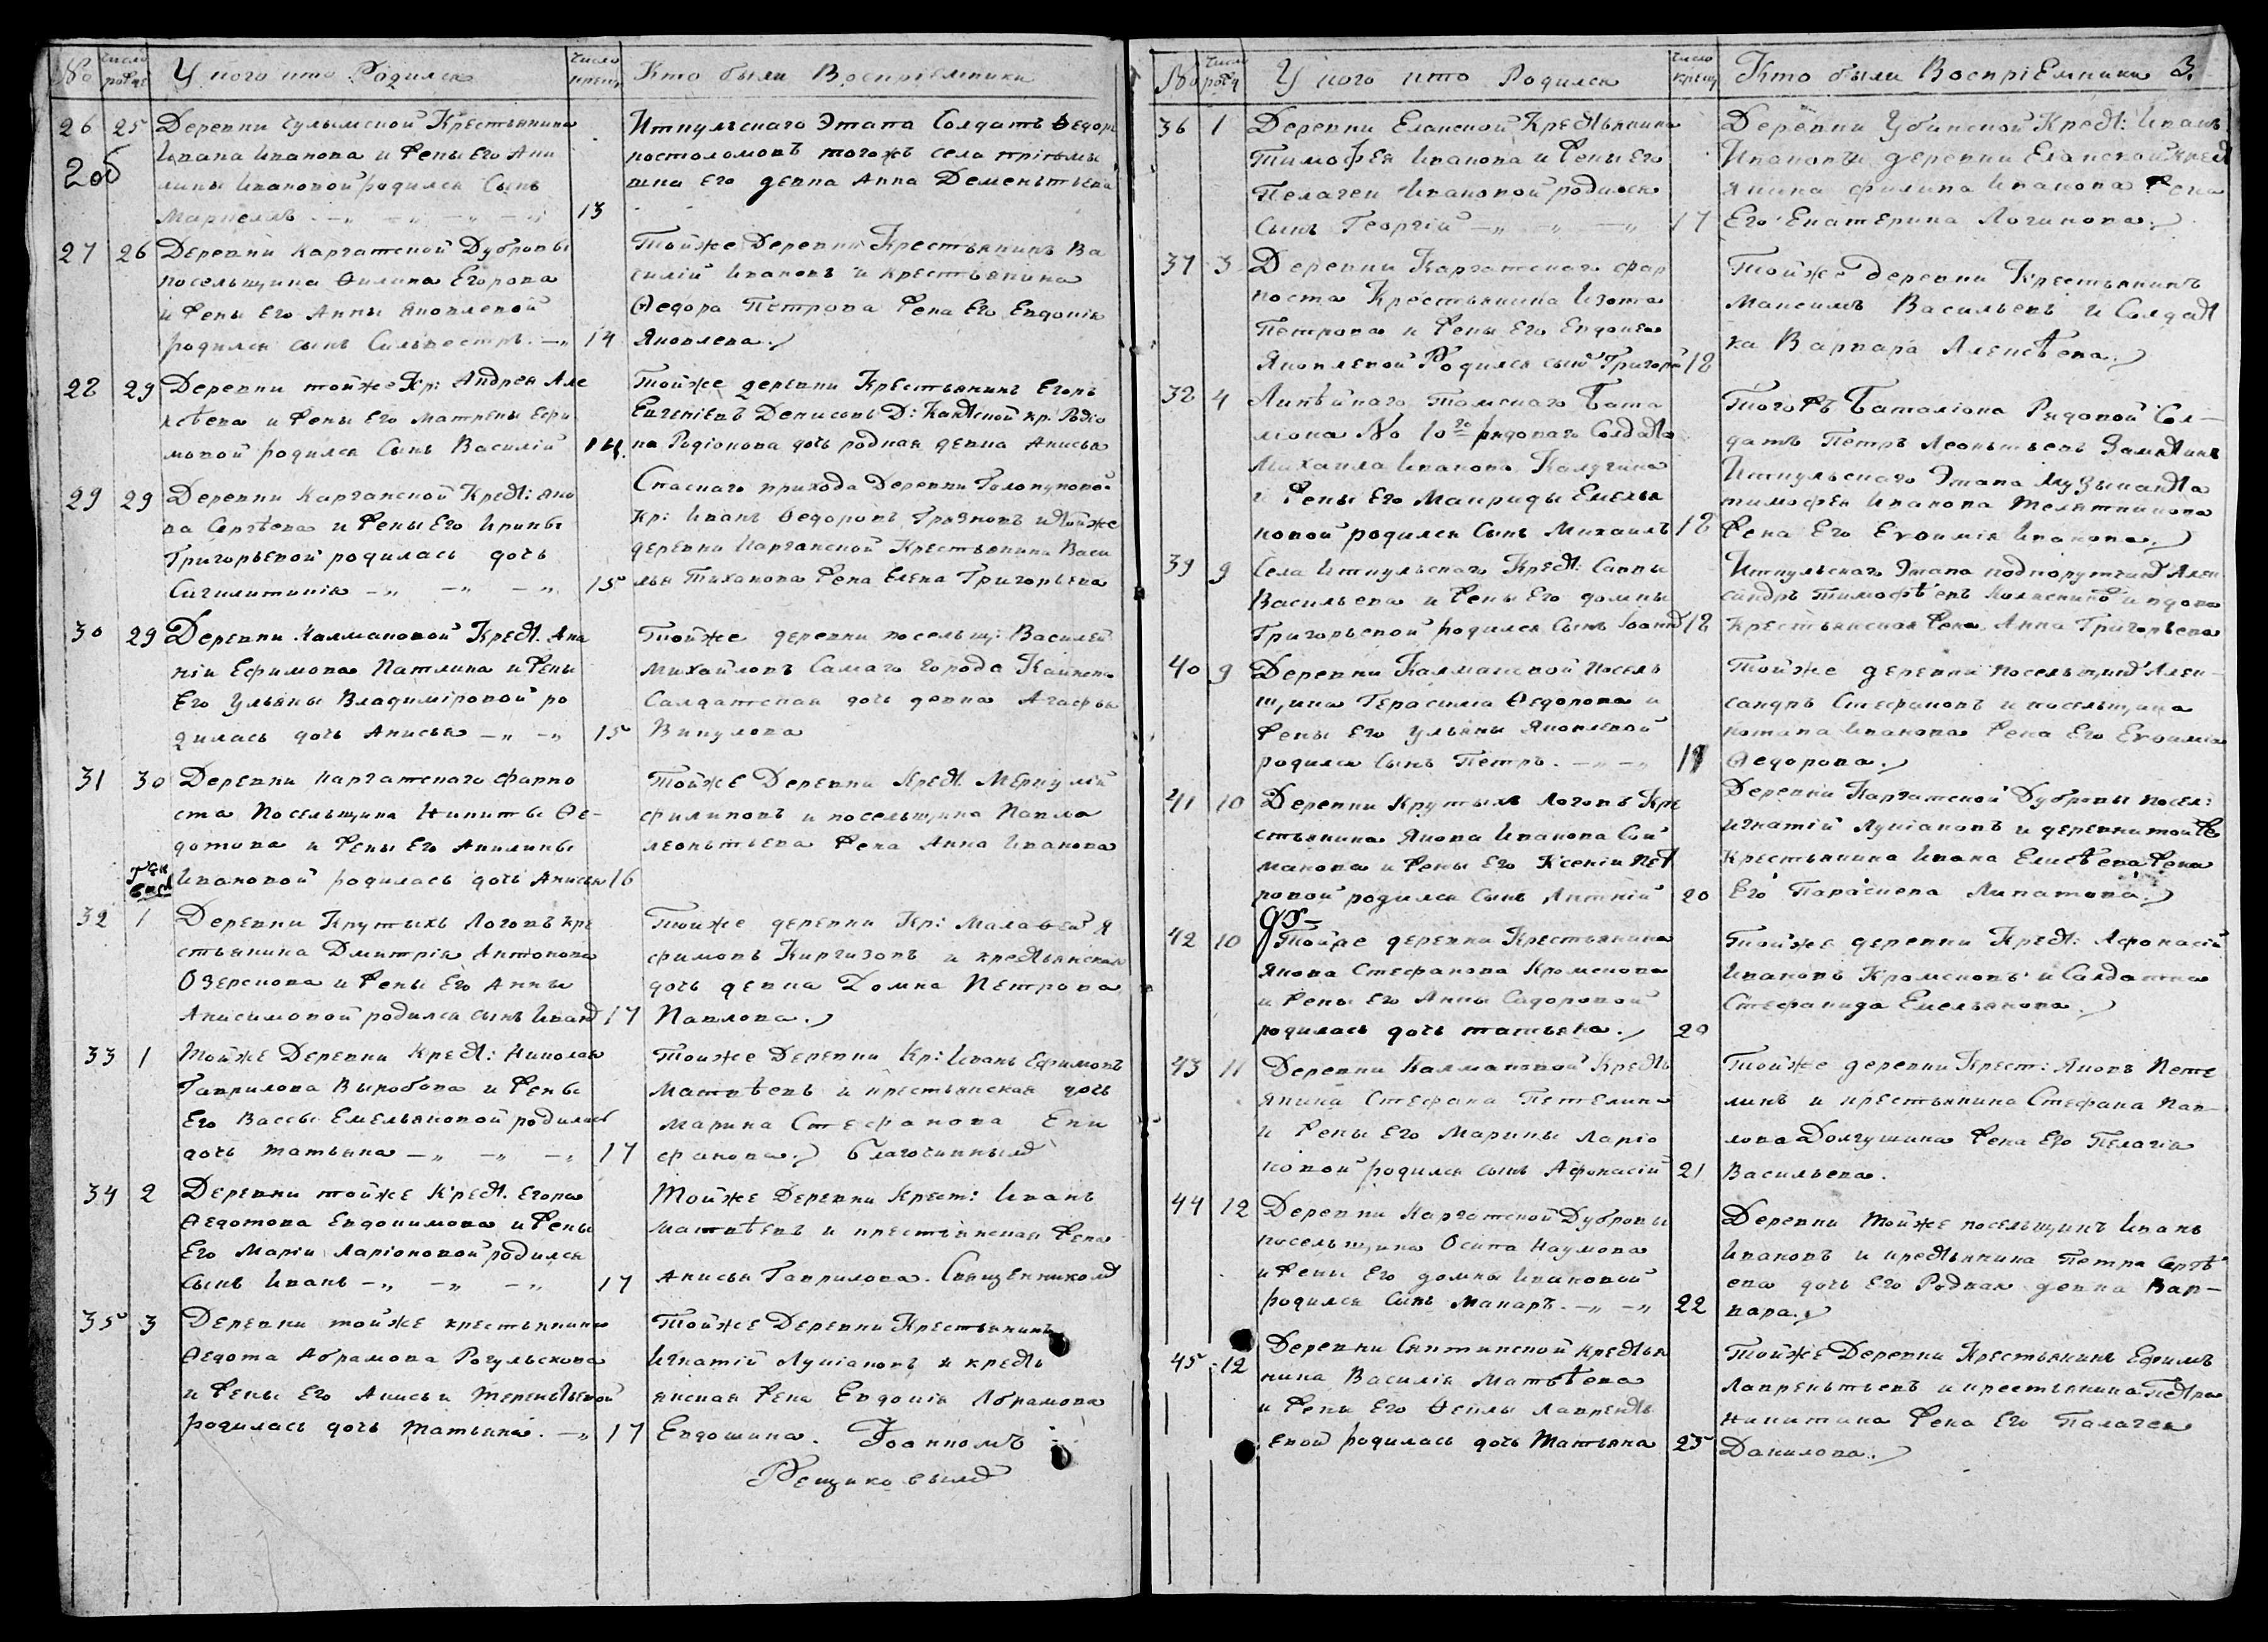 No
число рожд
У кого кто Родился
число крещ
Кто были Воспріемники
26 25 Деревни Чулымской Крестьянина
Ивана Иванова и Жены Его Аку
лины Ивановой родился Сынъ
13
Иткульскаго Этапа Солдатъ Ѳедоръ
тогожъ села
Его девка Анна Дементьева
2об
27 26 Деревни Каргатской Дубровы
посельщика Филипа Егорова
и Жены Его Анны Яковлевой
родился сынъ Сильвестръ. 14
Тойже Деревни Крестьянинъ Ва
силій Ивановъ и крестьянина
Ѳедора Петрова Жена Его Евдокія
Яковлева.
28 29 Деревни тойже Кр: Андрея Але
ксѣева и Жены Его Матрены Ефи
мовой родился Сынъ Василій 14.
Тойже деревни Крестьянинъ Егоръ
Евгеніевъ Денисовъ Д: кр. Родіо
на Родіонова дочь родная девка Анисья
29 29 Деревни Карганской Крест: Яко
ва Сергѣева и Жены Его Ирины
Григорьевой родилась дочь
Сигклитикія 15
Спаскаго прихода Деревни Голопуповой
Кр: Иванъ Ѳедоровъ Грязновъ и тойже
деревни Карганской Крестьянина Васи
лья Тиханова Жена Елена Григорьева
30 29 Деревни Калмаковой Крест. Ана
ніи Ефимова Патлина и Жены
Его Ульяны Владиміровой ро
дилась дочь Анисья 15
Тойже деревни посельщ: Василей
Михайловъ Самаго Города Каинска
Салдатская дочь девка Агафья
Викулова
31 30 Деревни Каргатскаго Фарпо
ста Посельщика Никиты Ѳе-
дотова и Жены Его Акилины
Ивановой родилась дочь Анисья 16
Тойже Деревни Крест. Меркулій
Филиповъ и посельщика Павла
Леонтьева Жена Анна Иванова
32 1 Деревни Крутыхъ Логовъ Кре
стьянина Дмитрія Антонова
Озерскова и Жены Его Анны
Анисимовой родился сынъ Иванъ 17
Тойже деревни Кр: Малафей Я
фимовъ Киргизовъ и крестьянская
дочь девка Домна Петрова
Павлова.
33 1 Тойже Деревни Крест: Николая
Гаврилова Выробова и Жены
Его Вассы Емельяновой родилась
дочь Татьяна 17
Тойже Деревни Кр: Иванъ Ефимовъ
Матвѣевъ и крестьянская дочь
Марина Стефанова Епи
фанова. Благочинным
34 2 Деревни тойже Крест. Егора
Ѳедотова Евдокимова и Жены
Его Маріи Ларіоновой родился
Сынъ Иванъ 17
Тойже Деревни Крест: Иванъ
Матвѣевъ и крестьянская Жена
Анисья Гаврилова. Священником
35 3 Деревни тойже крестьянина
Ѳедота Абрамова Рогульскова
и Жены Его Анисьи Терентьевой
родилась дочь Татьяна. 17
Тойже Деревни Крестьянинъ
Игнатій Лукіановъ и кресть
янская Жена Евдокія Абрамова
Евдошина. Іоанномъ
Рещиковым
No
число рожд
У кого кто Родился
число крещ
Кто были Воспріемники 3.
36 1 Деревни Еланской Крестьянина
Тимофея Иванова и Жены Его
Пелагеи Ивановой родился
Сынъ Георгій 17
Деревни Убинской Крест: Иванъ
Ивановъ и деревни Еланской Крест
янина Филипа Иванова Жена
Его Екатерина Логинова.
37 3 Деревни Каргатскаго фар
поста Крестьянина Изота
Петрова и Жены Его Евдокеи
Яковлевой Родился сынъ Григорій 18
Тойже деревни Крестьянинъ
Максимъ Васильевъ и Солдат
ка Варвара Алексѣева.
38 4 Линѣйнаго Томскаго Бата
ліона No 10го рядоваго Солдата
Михаила Иванова Калугина
и Жены Его Мавриды Емелья
новой родился Сынъ Михаилъ 18
Тогожъ Баталіона Рядовой Сол-
датъ Петръ Леонтьевъ Замятинъ
Иткульскаго Этапа Музыканта
тимофея Иванова Телятникова
Жена Его Евѳимія Иванова.
39 9 Села Иткульскаго Крест: Саввы
Васильева и Жены Его Домны
Григорьевой родился Сынъ Іоанн 18
Иткульскаго Этапа подпорутчик Алек
сандръ Тимофѣевъ и вдова
Крестьянская Жена Анна Григорьева
40 9 Деревни Калмаковой Посель
щика Герасима Ѳедорова и
Жены Его Ульяны Яковлевой
родился Сынъ Петръ. 19
Тойже деревни посельщик Алек-
сандръ Стефановъ и посельщика
потапа Иванова Жена Его Евѳимія
Ѳедорова.
41 10 Деревни Крутыхъ Логовъ Кре
стьянина Якова Иванова Сой
манова и Жены Его Ксеніи Пет
ровой родился Сынъ 20
Деревни Каргатской Дубровы посел:
Игнатій Лукіановъ и деревни той же
Крестьянина Ивана Елисѣева Жена
Его Параскева Липатова.
42 10 Тойже деревни Крестьянина
Якова Стефанова Кромскова
и Жены Его Анны Сидоровой
родилась дочь татьяна. 20
Тойже деревни Крест: Афонасій
Ивановъ Кромсковъ и Салдатка
Стефанида Емельянова.
43 11 Деревни Калмаковой Кресть
янина Стефана Петелина
и Жены Его Марины Ларіо
новой родился сынъ Афонасій 21
Тойже деревни Крест: Яковъ Пете
линъ и крестьянина Стефана Пав-
лова Долгушина Жена Его Пелагія
Васильева.
44 12 Деревни Каргатской Дубровы
посельщика Осипа Наумова
и Жены Его домны Ивановой
родился Сынъ Макаръ. 22
Деревни Тойже посельщикъ Иванъ
Ивановъ и крестьянина Петра Сергѣ
ева дочь Его Родная девка Вар-
вара.
45 12 Деревни Сектинской кресть
нина Василія Матвѣева
и Жены Его Ѳеклы Лаврентье
евой родилась дочь Татьяна 25
Тойже Деревни Крестьянинъ Ефимъ
Лаврентьевъ и крестьянина Петра
Никитина Жена Его Палагея
Данилова.